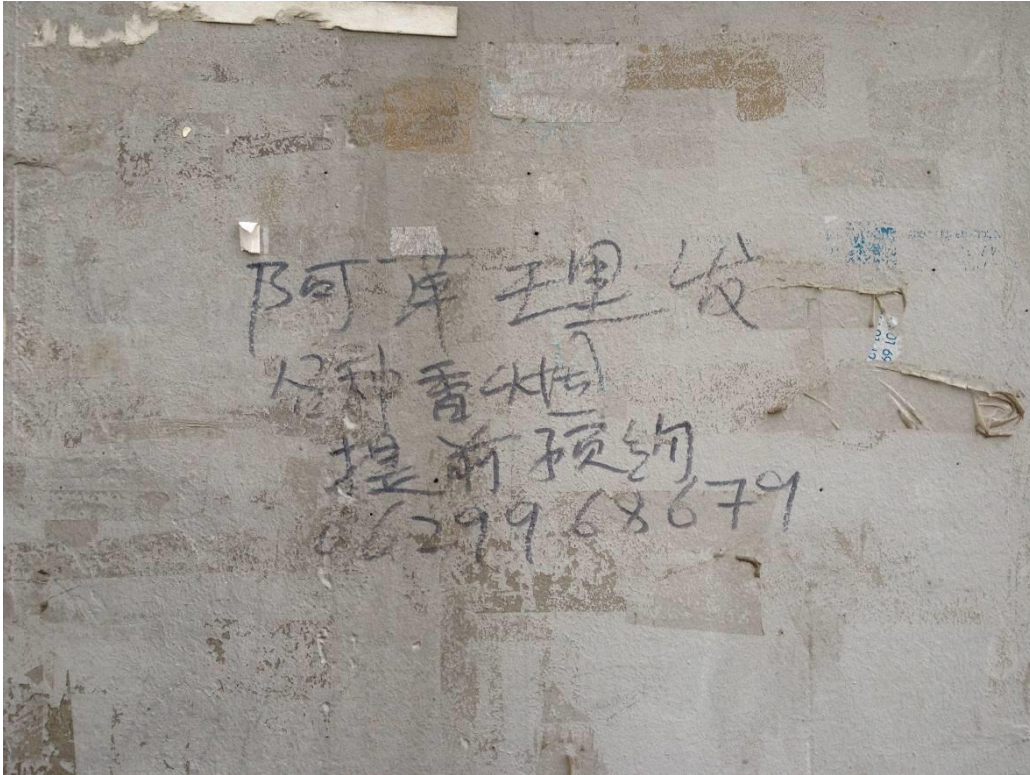 阿革理发
各种香烟
提前预约
0629968679